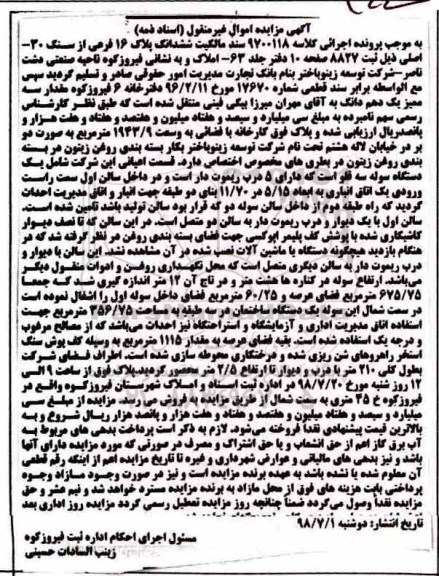 آگهی مزایده اموال غیرمنقول (اسناد ذمه)
به موجب پرونده اجرائی کلاسه ۹۷۰۰۱۱۸ سند مالکیت ششدانگ پلاک ۱۶ فرعی از سنگ ۳۰-
اصلی ذیل ثبت ۸۸۲۷ صفحه ۱۰ دفتر جلد ۶۳- املاک و به نشانی فیروزکوه ناحیه صنعتی دشت
ناصر-شرکت توسعه زینوباختر بنام بانک تجارت مدیریت امور حقوقی صادر و تسلیم گردید سپس
مع الواسطه برابر سند قطعی شماره ۱۷۶۷۰ مورخ ۹۶/۲/۱۱ دفترخانه ۶ فیروزکوه مقدار سه
ممیز یک دهم دانگ به آقای مهران میرزا بیگی فینی منتقل شده است که طبق نظر کارشناس
رسمی سهم نامبرده به مبلغ سی میلیارد و سیصد و هفتاد میلیون و هفتصد و هفتاد و هفت هزار و
پانصدریال ارزیابی شده و پلاک فوق کارخانه با فضائی به وسعت ۱۹۴۳/۹ مترمربع به صورت دو
بر در خیابان لاله هشتم تحت نام شرکت توسعه زینوباختر بکار بسته بندی روغن زیتون در بسته
بندی روغن زیتون در بطری های مخصوص اختصاص دارد. قسمت اعیانی این شرکت شامل یک
دستگاه سوله سه قلو است که دارای ۵ درب ریموت دار است و در داخل سالن اول سمت راست
ورودی یک اتاق انباری به ابعاد ۵/۱۵ در ۱۱/۷۰ بنای دو طبقه جهت انبار و اتاق مدیریت احداث
گردید که راه طبقه دوم از داخل سالن سوله دو که قرار بود سالن تولید باشد تامین شده است.
سالن اول با یک دیوار و درب ریموت دار به سالن دو متصل است. در این سالن که تا نصف دیوار
کاشیکاری شده با پوشش کف پلیمر اپوکسی جهت فضای بسته بندی روغن در نظر گرفته شد که در
هنگام بازدید هیچگونه دستگاه یا ماشین آلات نصب شده در آن مشاهده نشد. این سالن با دیوار و
درب ریموت دار به سالن دیگری متصل است که محل نگهداری روغن و ادوات منقول دیگر
می‌باشد. ارتفاع سوله در کناره ها هشت متر و در تاج آن ۱۲ متر اندازه گیری شد که جمعا
۶۷۵/۷۵ مترمربع فضای عرصه و ۶۰/۲۵ مترمربع فضای داخل سوله اول را اشغال نموده است
در سمت شمال این سوله یک دستگاه ساختمان در سه طبقه به مساحت ۳۵۶/۷۵ مترمربع جهت
استفاده اتاق مدیریت اداری و آزمایشگاه و استراحتگاه نیز احداث می‌باشد که از مصالح مرغوب
و درجه یک استفاده شده است. بقیه فضای عرصه به مقدار ۱۱۱۵ مترمربع به وسیله کف پوش سنگ
استخر راهروهای شن ریزی شده و درختکاری محوطه سازی شده است. اطراف فضای شرکت
بطول کلی ۲۱۰ متر با درب و دیوار تا ارتفاع ۲/۵ متر محصور گردید.پلاک فوق از ساعت ۹ الی
۱۲ روز شنبه مورخ ۹۸/۷/۲۰ در اداره ثبت اسناد و املاک شهرستان فیروزکوه واقع در
فیروزکوه خ ۴۵ متری به سمت شمال از طریق مزایده به فروش می‌رسد. مزایده از مبلغ سی
میلیارد و سیصد و هفتاد میلیون و هفتصد و هفتاد و هفت هزار و پانصد هزار ریال شروع و به
بالاترین قیمت پیشنهادی نقدا فروخته می‌شود. لازم به ذکر است پرداخت بدهی های مربوط به
آب برق گاز اعم از حق انشعاب و یا حق اشتراک و مصرف در صورتی که مورد مزایده دارای آنها
باشد و نیز بدهی های مالیاتی و عوارض شهرداری و غیره تا تاریخ مزایده اعم از اینکه رقم قطعی
آن معلوم شده یا نشده باشد به عهده برنده مزایده است و نیز در صورت وجود مازاد وجوه
پرداختی بابت هزینه های فوق از محل مازاد به برنده مزایده مسترد خواهد شد و نیم عشر و حق
مزایده نقدا وصول می‌گردد ضمنا چنانچه روز مزایده تعطیل رسمی گردد مزایده روز اداری بعد
تاریخ انتشار: دوشنبه ۹۸/۷/۱
مسئول اجرای احکام اداره ثبت فیروزکوه
زینب السادات حسینی